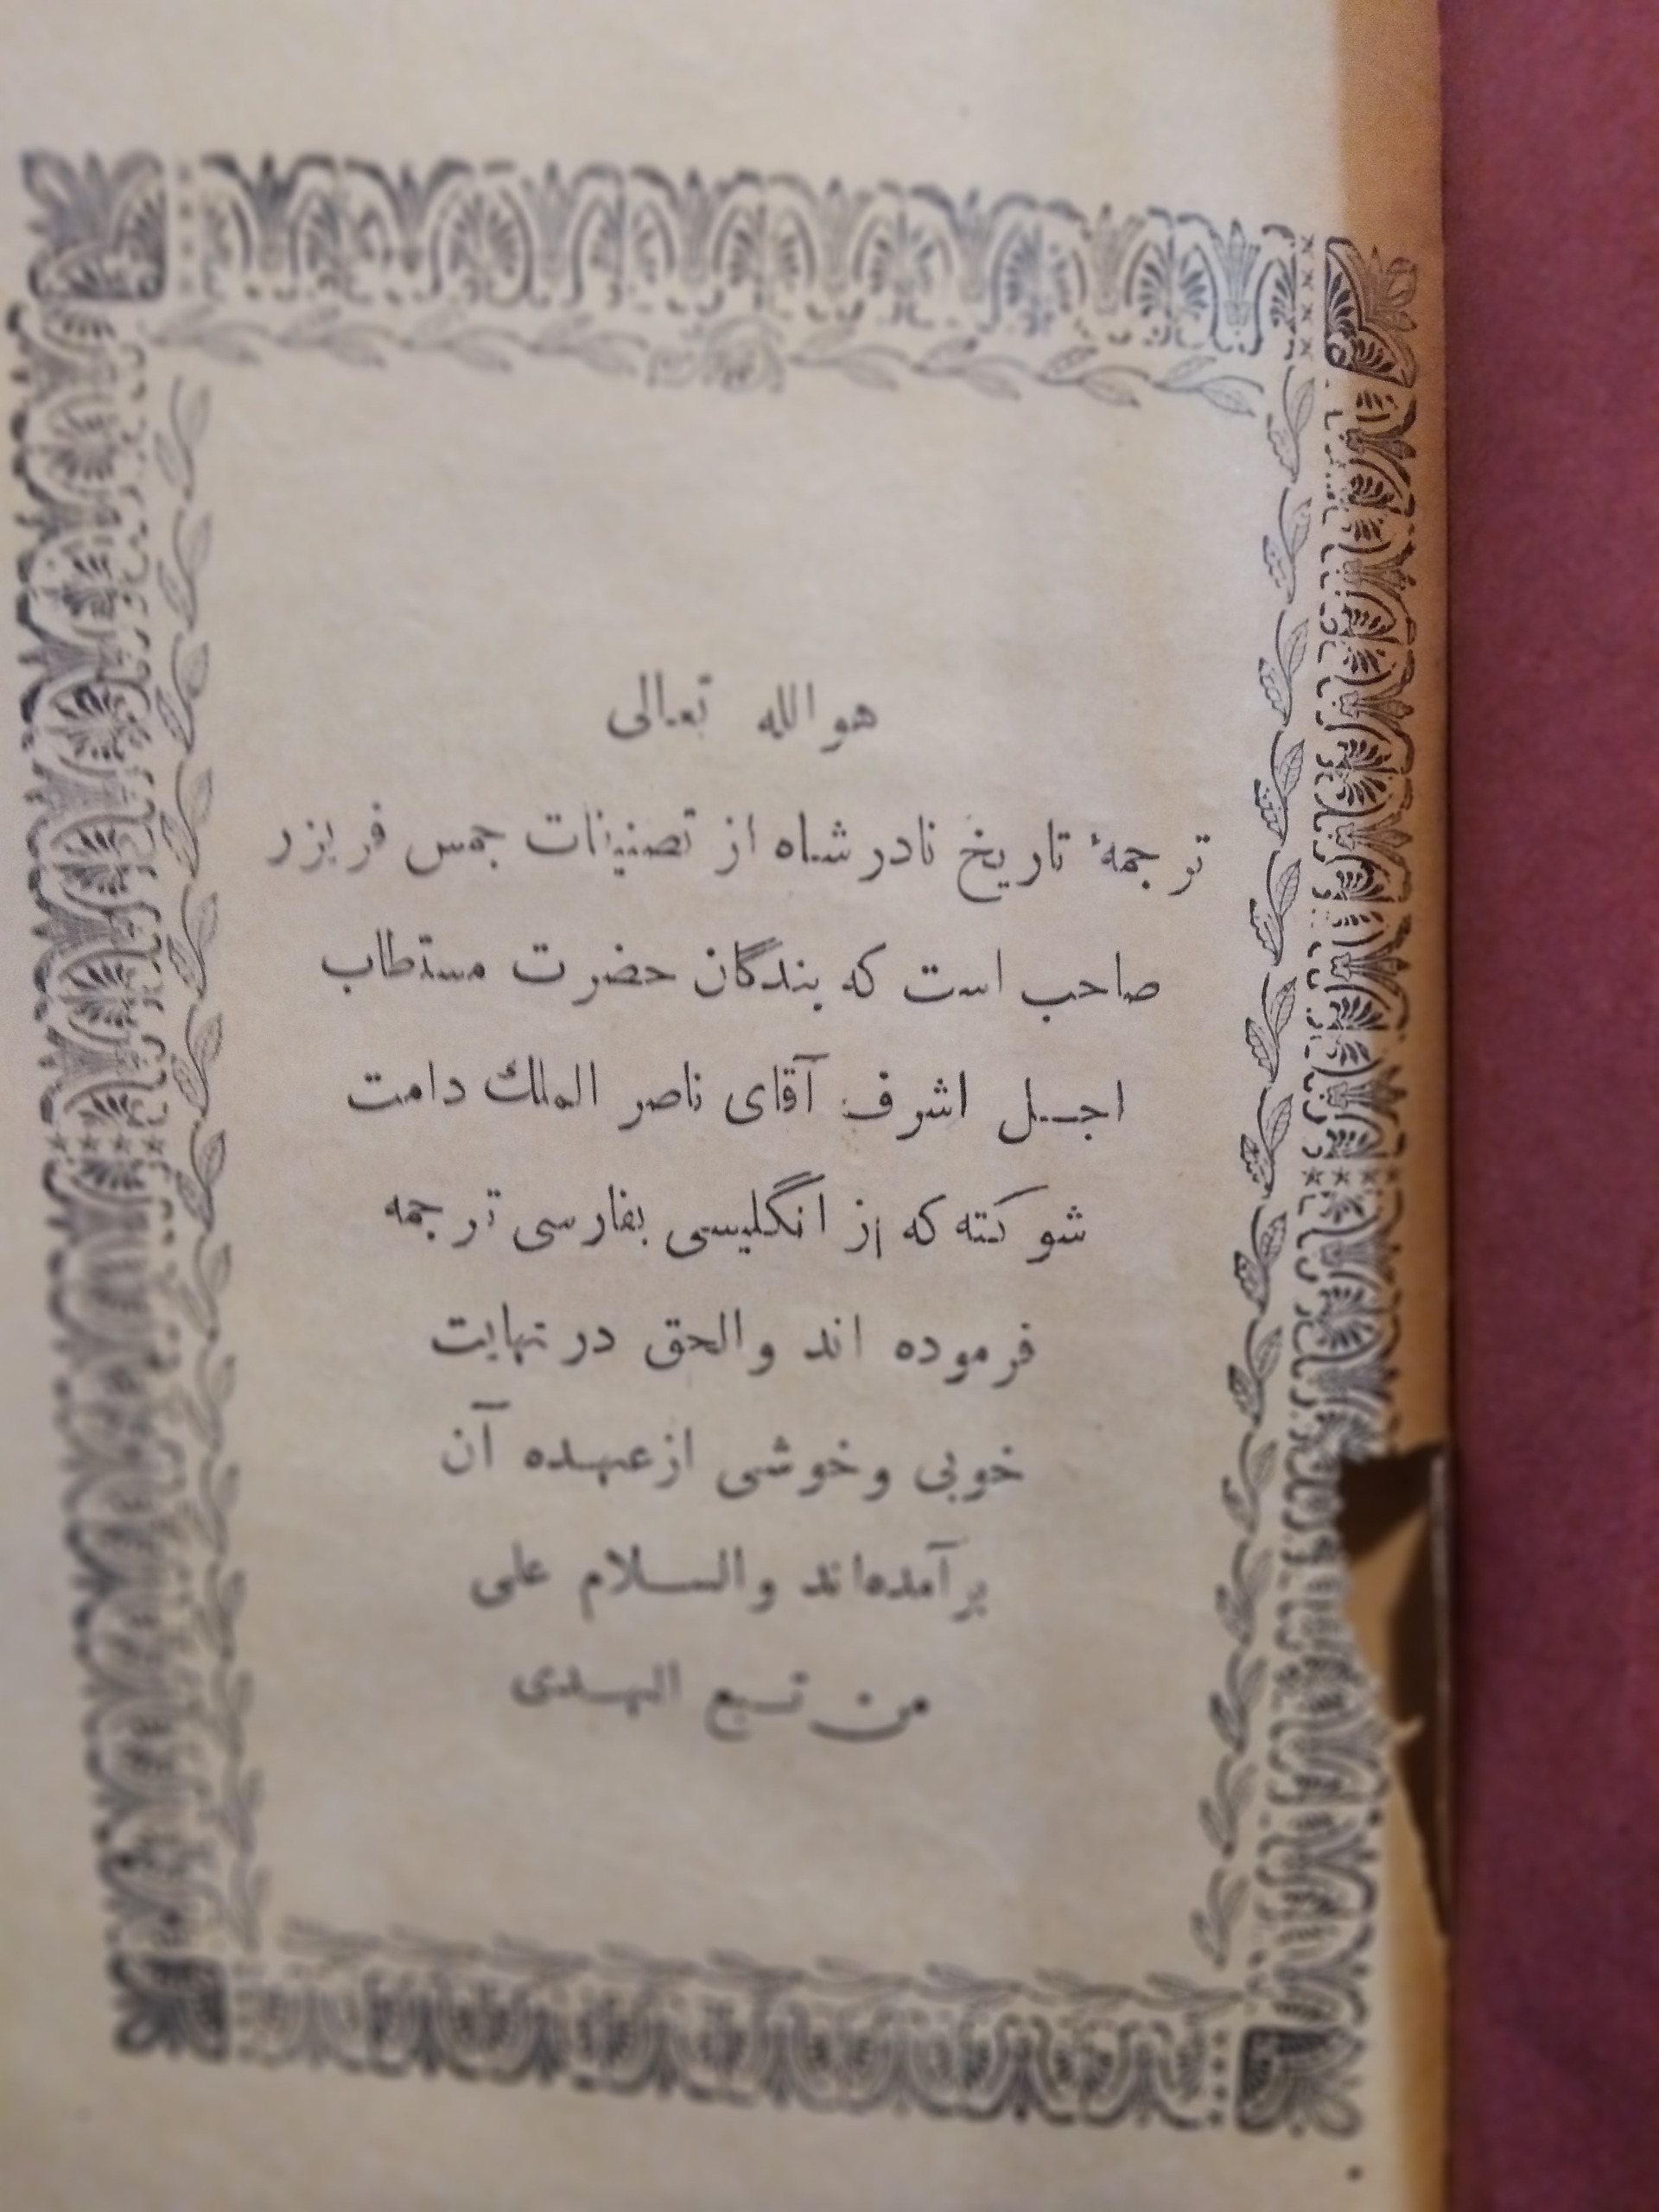 هو الله تعالی
ترجمهٔ تاریخ نادر شاه از تصنیفات جمس فریزر
صاحب است که بندگان حضرت مستطاب
اجل اشرف آقای ناصر الملك دامت
شوکته که از انگلیسی بفارسی ترجمه
فرموده اند والحق در نهایت
خوبی وخوشی از عهده آن
برآمده‌اند والسلام علی
من تبع الهدی